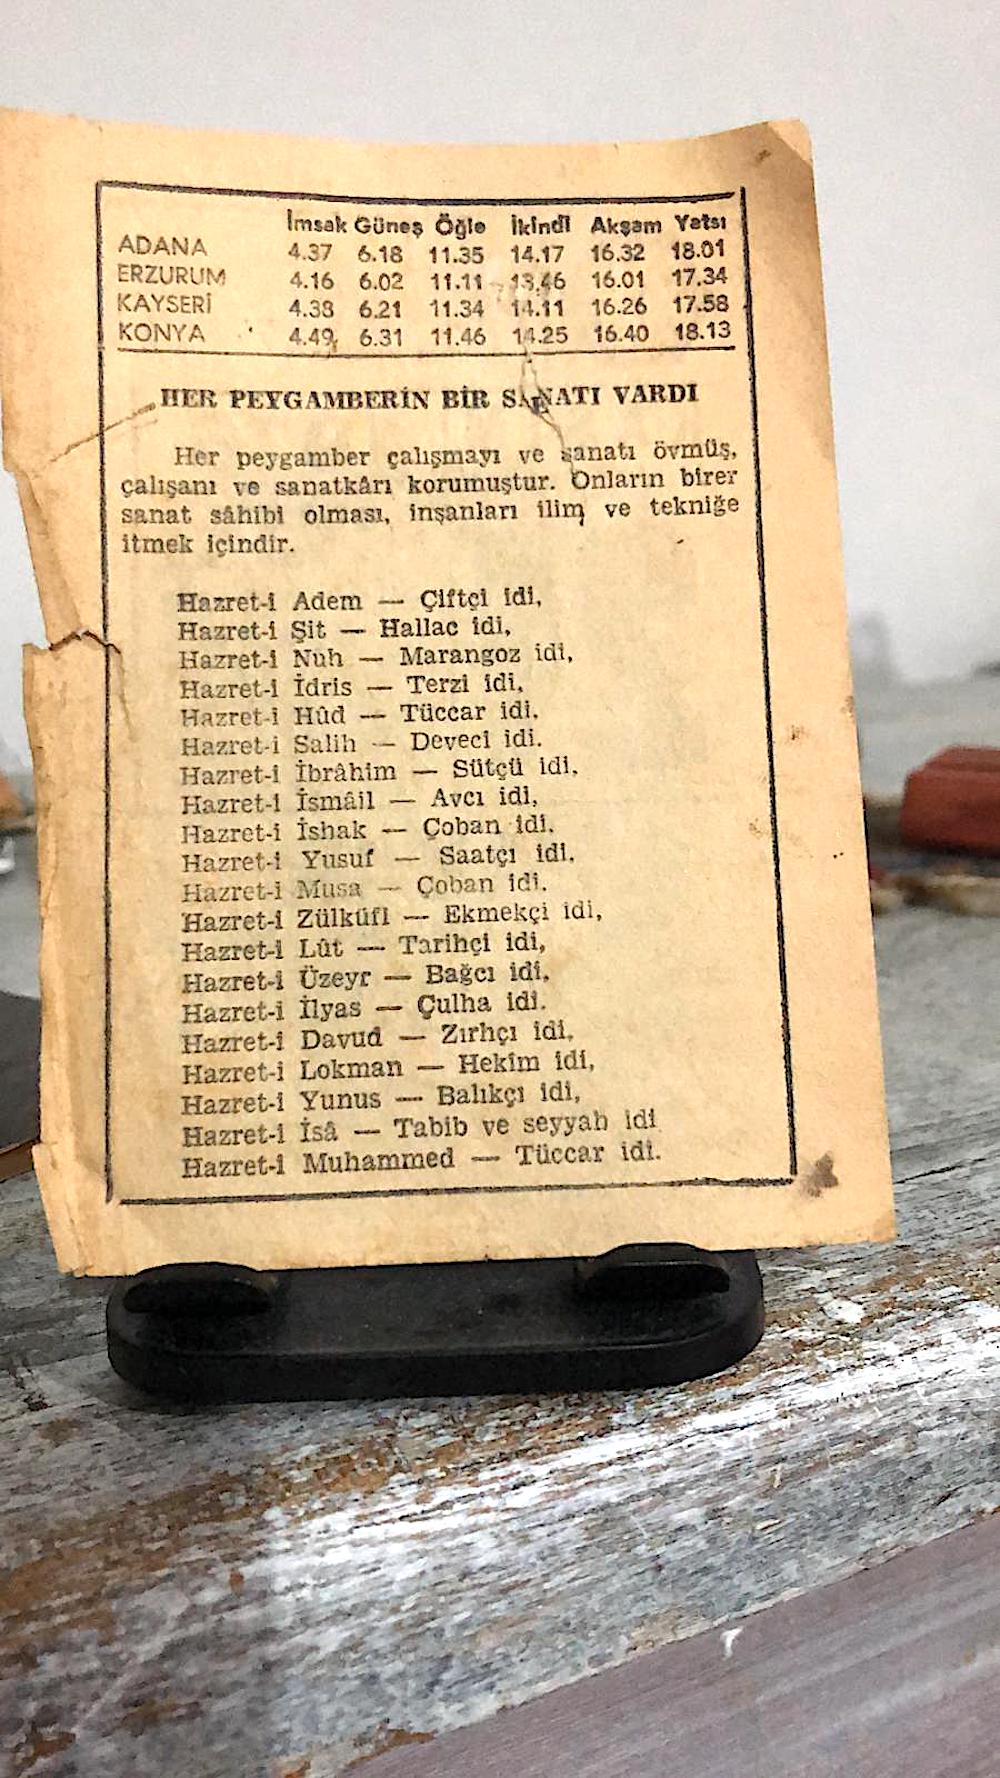 İmsak Güneş Öğle İkindi Akşam Yatsı
ADANA 4.37 6.18 11.35 14.17 16.32 18.01
ERZURUM 4.16 6.02 11.11 13.46 16.01 17.34
KAYSERİ 4.38 6.21 11.34 14.11 16.26 17.58
KONYA 4.49 6.31 11.46 14.25 16.40 18.13
HER PEYGAMBERİN BİR SANATI VARDI
Her peygamber çalışmayı ve sanatı övmüş,
çalışanı ve sanatkârı korumuştur. Onların birer
sanat sâhibi olması, inşanları ilim ve tekniğe
itmek içindir.
Hazret-i Adem — Çiftçi idi,
Hazret-i Şit — Hallac idi,
Hazret-i Nuh — Marangoz idi,
Hazret-i İdris — Terzi idi,
Hazret-i Hûd — Tüccar idi,
Hazret-i Salih — Deveci idi.
Hazret-i İbrâhim — Sütçü idi,
Hazret-i İsmâil — Avcı idi,
Hazret-i İshak — Çoban idi,
Hazret-i Yusuf — Saatçı idi,
Hazret-i Musa — Çoban idi.
Hazret-i Zülküfl — Ekmekçi idi,
Hazret-i Lût — Tarihçi idi,
Hazret-i Üzeyr — Bağcı idi,
Hazret-i İlyas — Çulha idi.
Hazret-i Davud — Zırhçı idi,
Hazret-i Lokman — Hekîm idi,
Hazret-i Yunus — Balıkçı idi,
Hazret-i İsâ — Tabib ve seyyah idi
Hazret-i Muhammed — Tüccar idi.